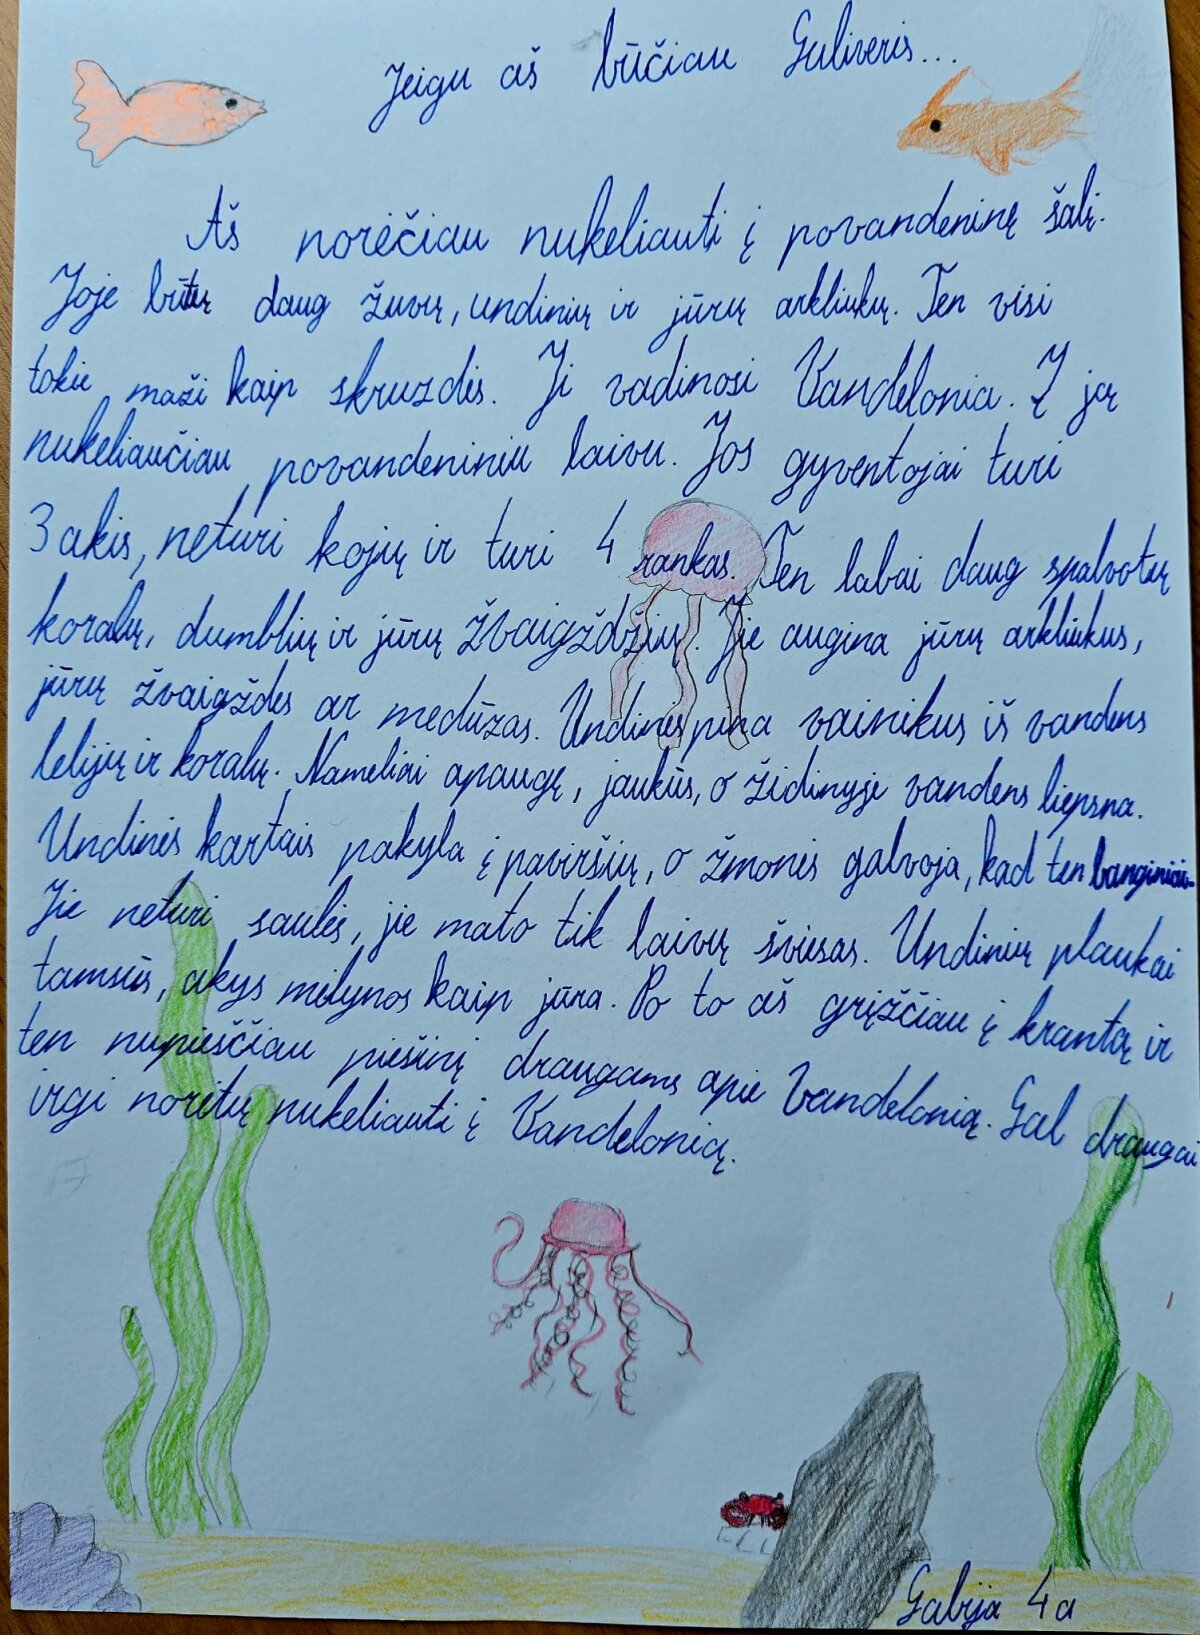 Jeigu aš būčiau Guliveris...
Aš norėčiau nukeliauti į povandeninę šalį.
Joje būtų daug žuvų, undinių ir jūrų arkliukų. Ten visi
tokie maži kaip skruzdės. Ji vadinosi Vandelonia. Į ją
nukeliaučiau povandeniniu laivu. Jos gyventojai turi
3 akis, neturi kojų ir turi 4 rankas. Ten labai daug spalvotų
koralų, dumblių ir jūrų žvaigždžių. Jie augina jūrų arkliukus,
jūrų žvaigždes ar medūzas. Undinės pina vainikus iš vandens
lelijų ir koralų. Nameliai apaugę, jaukūs, o židinyje vandens liepsna.
Undinės kartais pakyla į paviršių, o žmonės galvoja, kad ten banginiai.
Jie neturi saulės, jie mato tik laivų šviesas. Undinių plaukai
tamsūs, akys mėlynos kaip jūra. Po to aš grįžčiau į krantą ir
ten nupieščiau piešinį draugams apie Vandelonią. Gal draugai
irgi norėtų nukeliauti į Vandelonią.
Gabija 4a